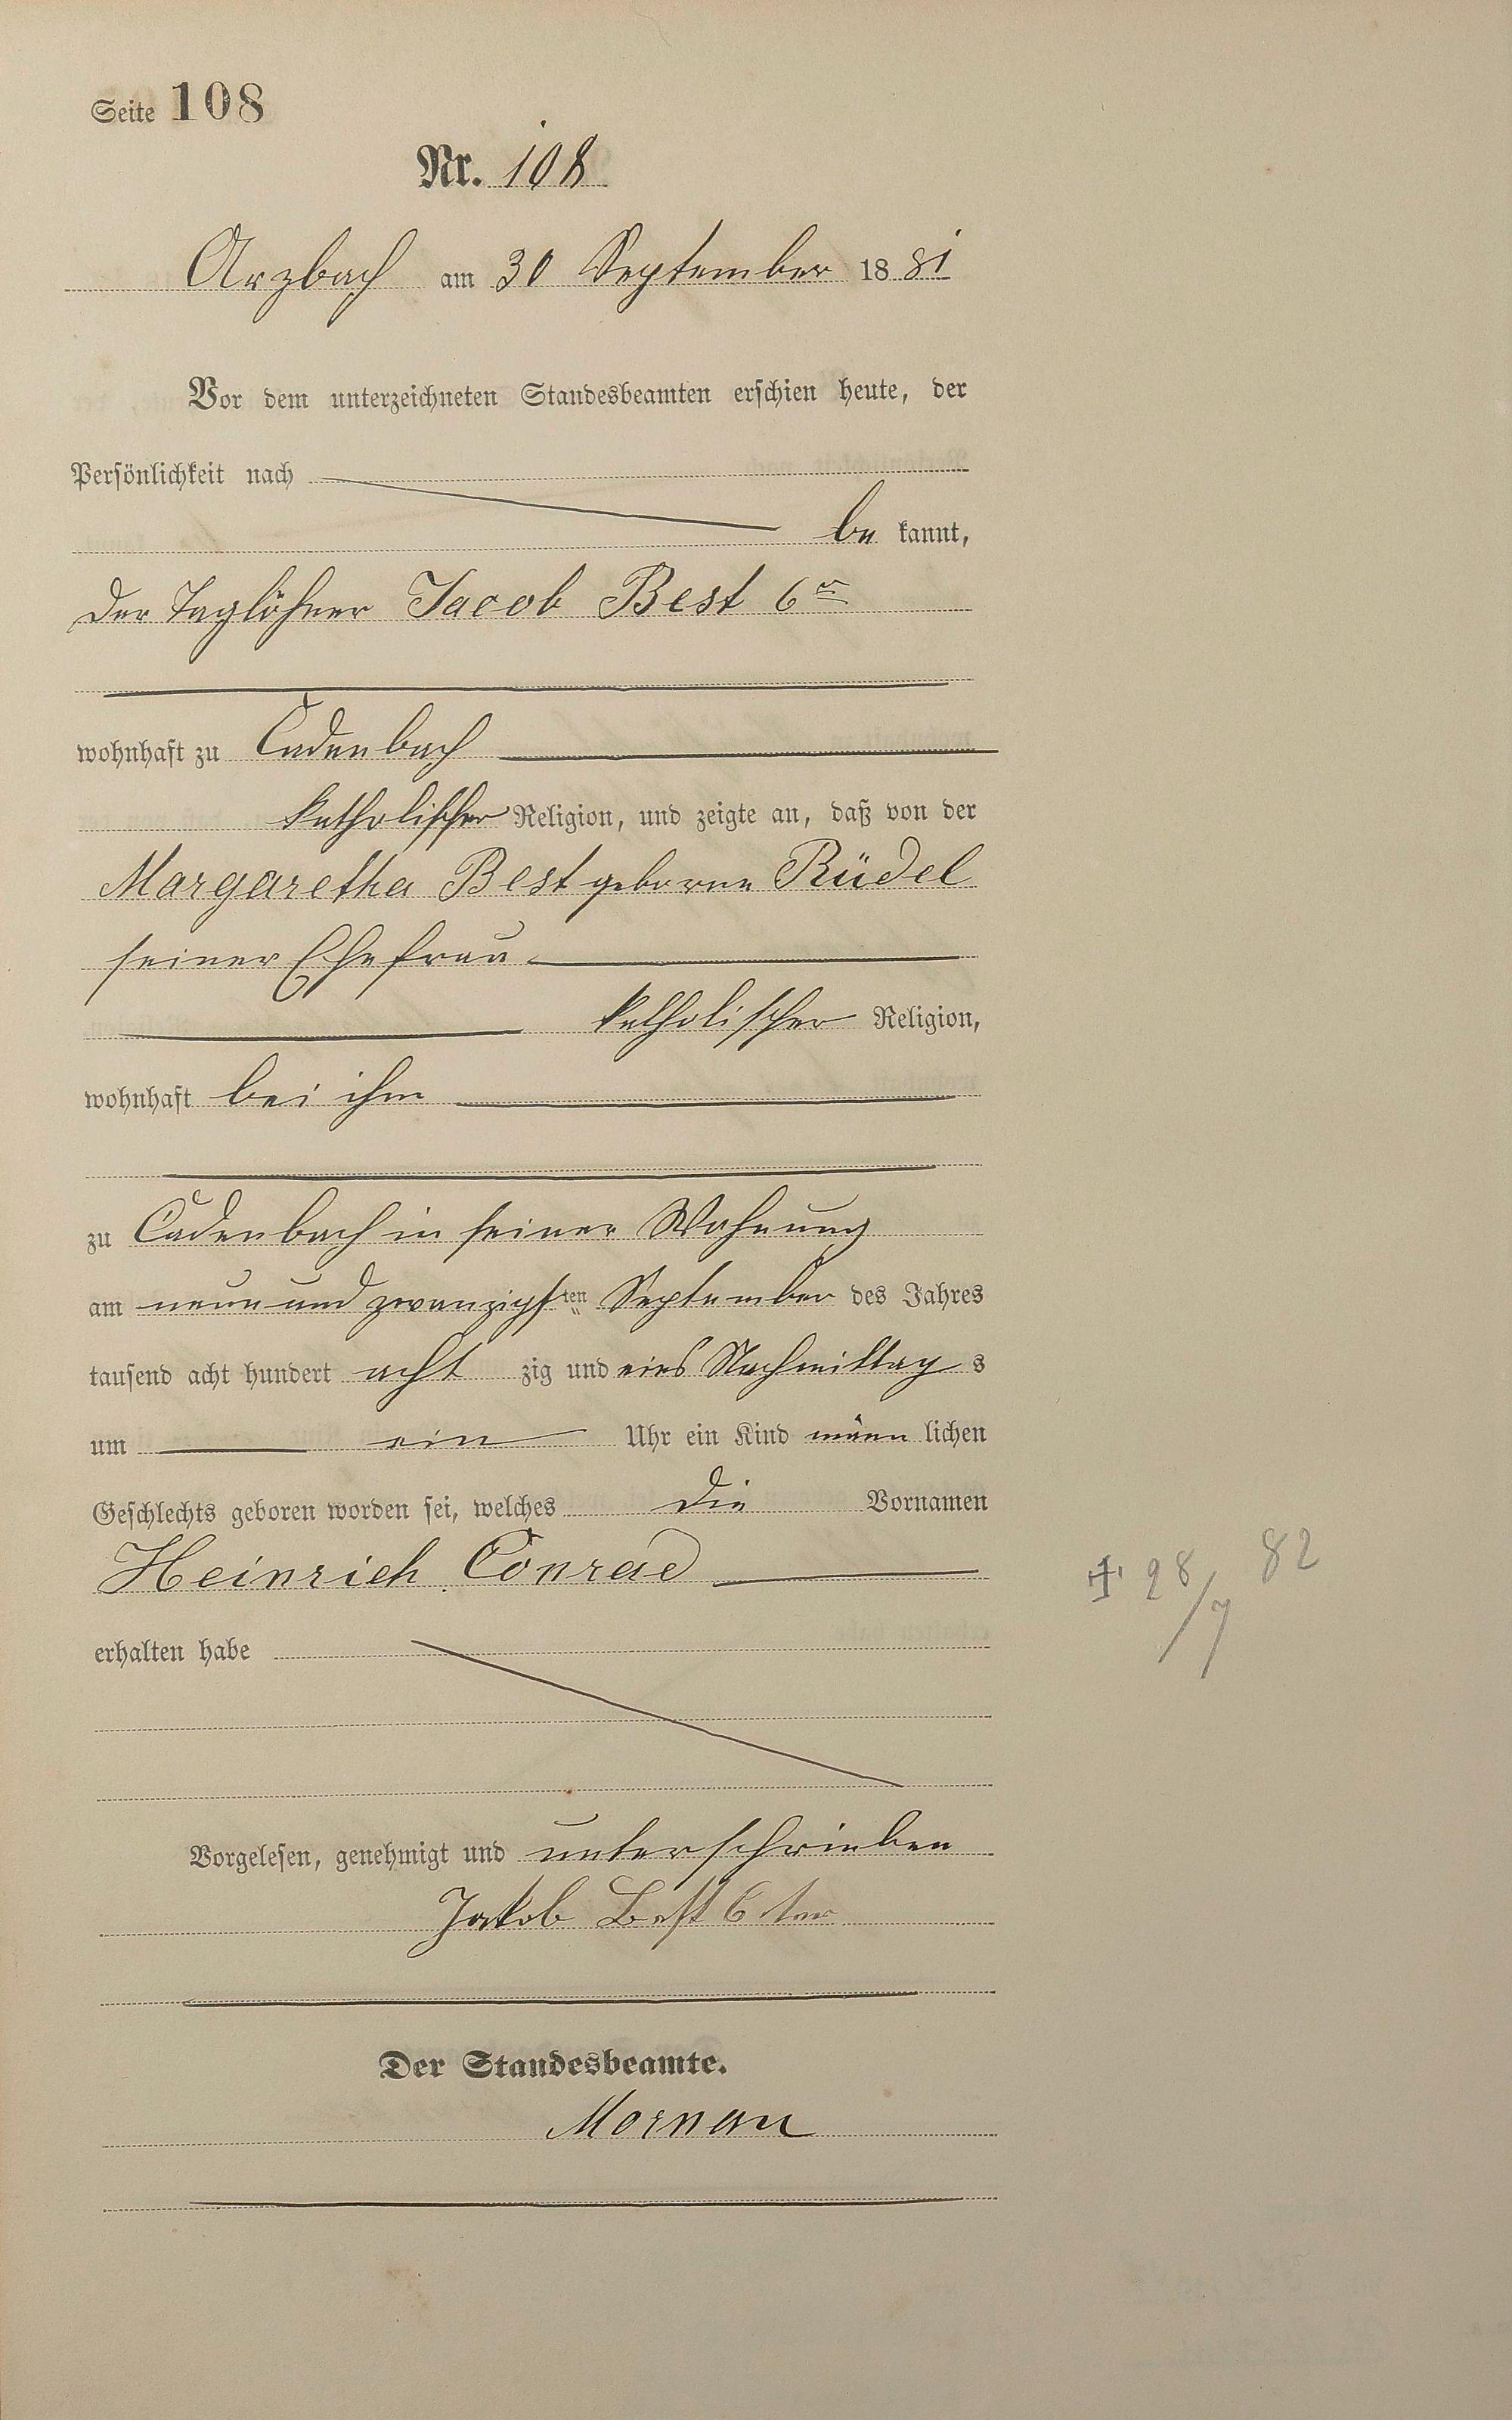 Seite 108
Nr. 108
Arzbach am 30 September 1881
Vor dem unterzeichneten Standesbeamten erschien heute, der
Persönlichkeit nach
be kannt,
der Taglöhner Jacob Best 6r
wohnhaft zu Cadenbach
katholischer Religion, und zeigte an, daß von der
Margaretha Best geborne Rüdel
seiner Ehefrau
katholischer Religion,
wohnhaft bei ihm
zu Cadenbach in seiner Wohnung
am neun und zwanzigsten September des Jahres
tausend acht hundert acht zig und eins Nachmittag s
um ein Uhr ein Kind männ lichen
Geschlechts geboren worden sei, welches die Vornamen
Heinrich Conrad
+ 28/7 82
erhalten habe
Vorgelesen, genehmigt und unterschrieben
Jakob Best 6 ter
Der Standesbeamte.